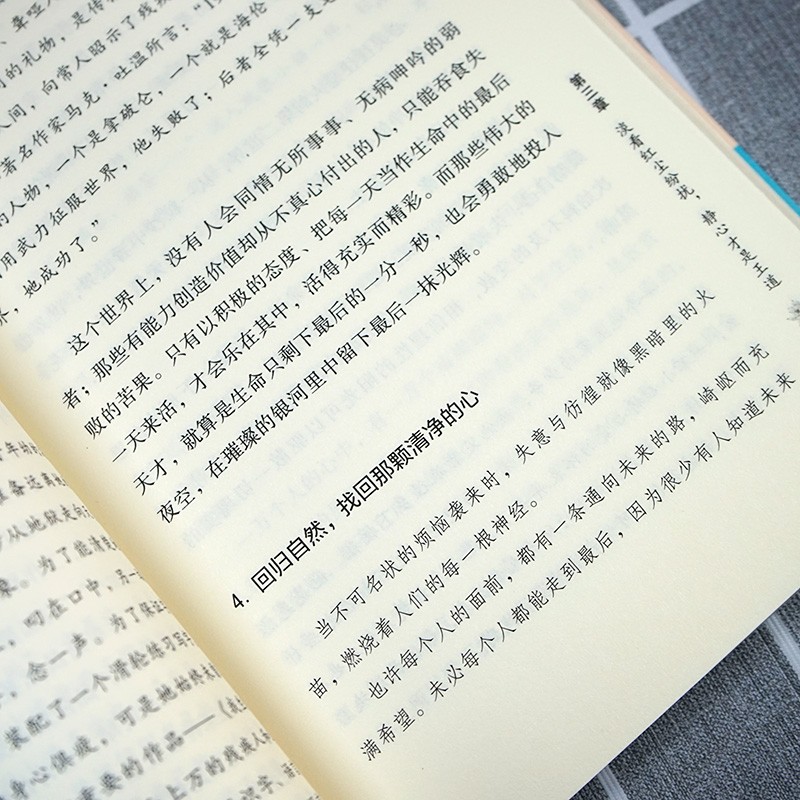 、聋哑人
的礼物，是传
人间，向常人昭示了残疾
著名作家马克·吐温所言：“1
的人物，一个是拿破仑，一个就是海伦
用武力征服世界，他失败了；后者全凭一支
，她成功了。”
这个世界上，没有人会同情无所事事、无病呻吟的弱
者；那些有能力创造价值却从不真心付出的人，只能吞食失
败的苦果。只有以积极的态度、把每一天当作生命中的最后
一天来活，才会乐在其中，活得充实而精彩。而那些伟大的
天才，就算是生命只剩下最后的一分一秒，也会勇敢地投入
夜空，在璀璨的银河里中留下最后一抹光辉。
4. 回归自然，找回那颗清净的心
当不可名状的烦恼袭来时，失意与彷徨就像黑暗里的火
苗，燃烧着人们的每一根神经。
也许每个人的面前，都有一条通向未来的路，崎岖而充
满希望。未必每个人都能走到最后，因为很少有人知道未来
第三章 淡看红尘纷扰，静心才是王道
。为了能
叼在口中，另一
念一声。为了
装配了一个滑轮练习写
身心俱疲，可是她始终
重要的作品——
上万的残疾人
识字，